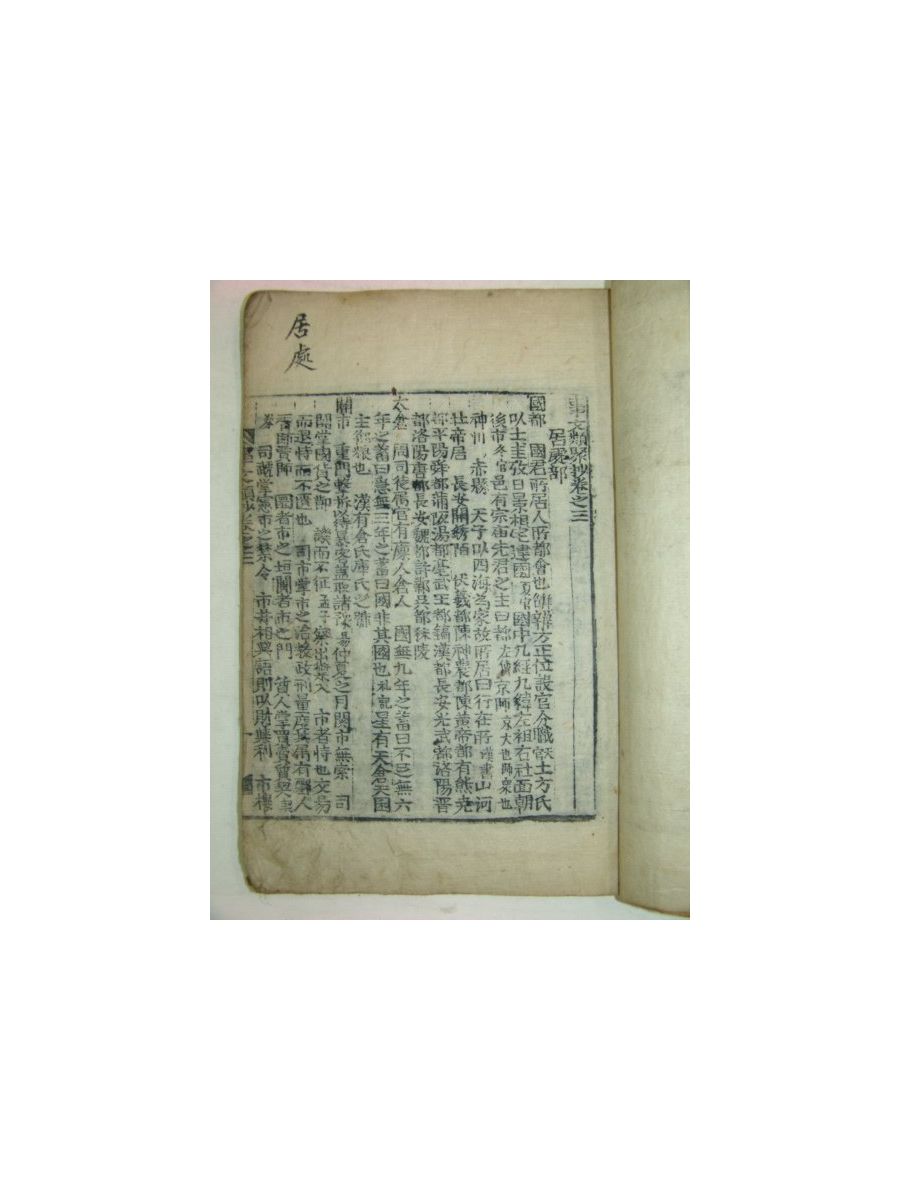 居處
事文類聚抄卷之三
居處部
國都 國君所居人所都會也 辨方正位設官分職 土方氏
以土圭致日景相宅建國 夏官 國中九經九緯左祖右社面朝
後市 冬官 邑有宗廟先君之主曰都 左傳 京師京大也師衆也
神州 赤縣 天子以四海為家故所居曰行在所 漢書 山河
壯帝居 長安 伏羲都陳神農都陳黃帝都有熊堯
都平陽舜都蒲阪湯都亳武王都鎬漢都長安光武都洛陽晉
都洛陽唐都長安魏都許鄴吳都秣陵
太倉 周司徒屬官有廩人倉人 國無九年之蓄曰不足無六
年之蓄曰急無三年之蓄曰國非其國也 礼記 星有天倉天囷
主 粮也 漢有倉氏庫氏之
關市 重門擊柝以待暴客 易 仲夏之月関市無索 司
関掌國貨之節 譏而不征 孟子 市者恃也交易
而退恃而不匱也 司市掌市之治教政刑量度 人
市之垣 者市之門 質人掌
司 掌憲市之禁令 市井相與語則以財與利 市樓